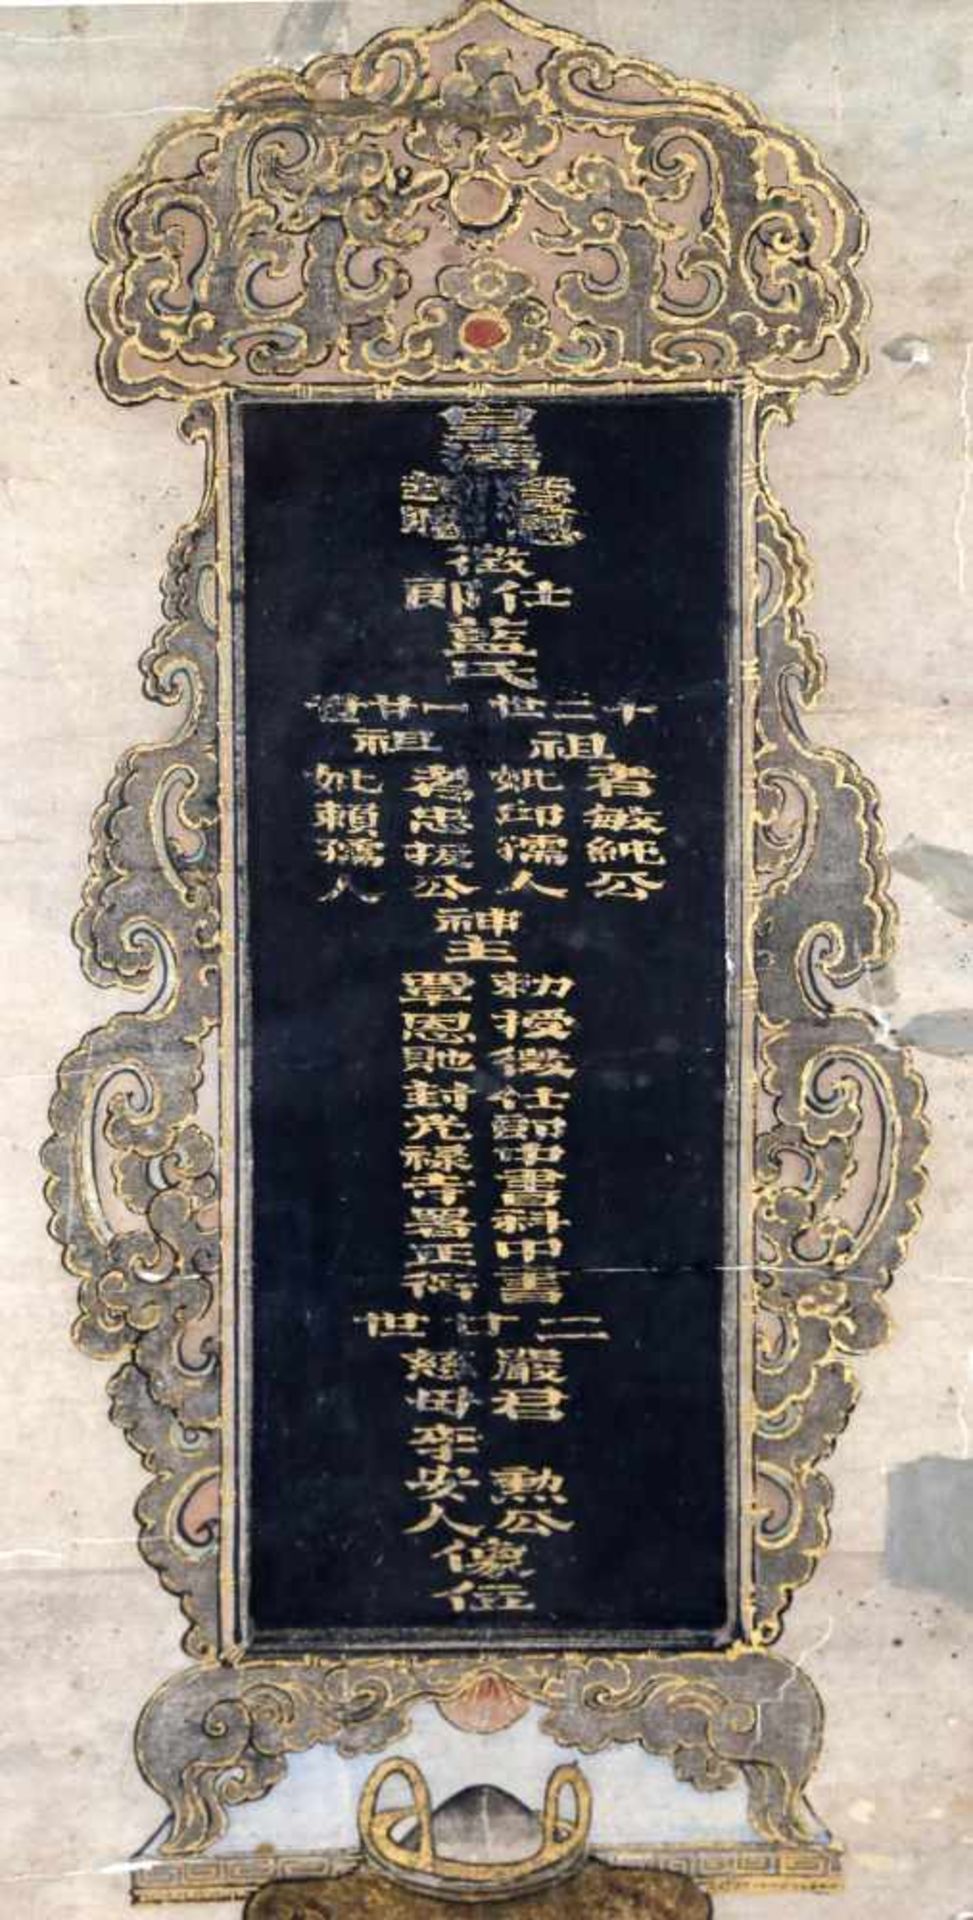 皇清
徵
仕郎
藍氏
十二世祖
考敏純公
妣邱孺人
一廿世祖
考忠拔公
妣賴孺人
神主
勅授徵仕郎中書科中書
覃恩貤封光祿寺署正銜
二廿世
嚴君 勲公
慈母李安人
像位